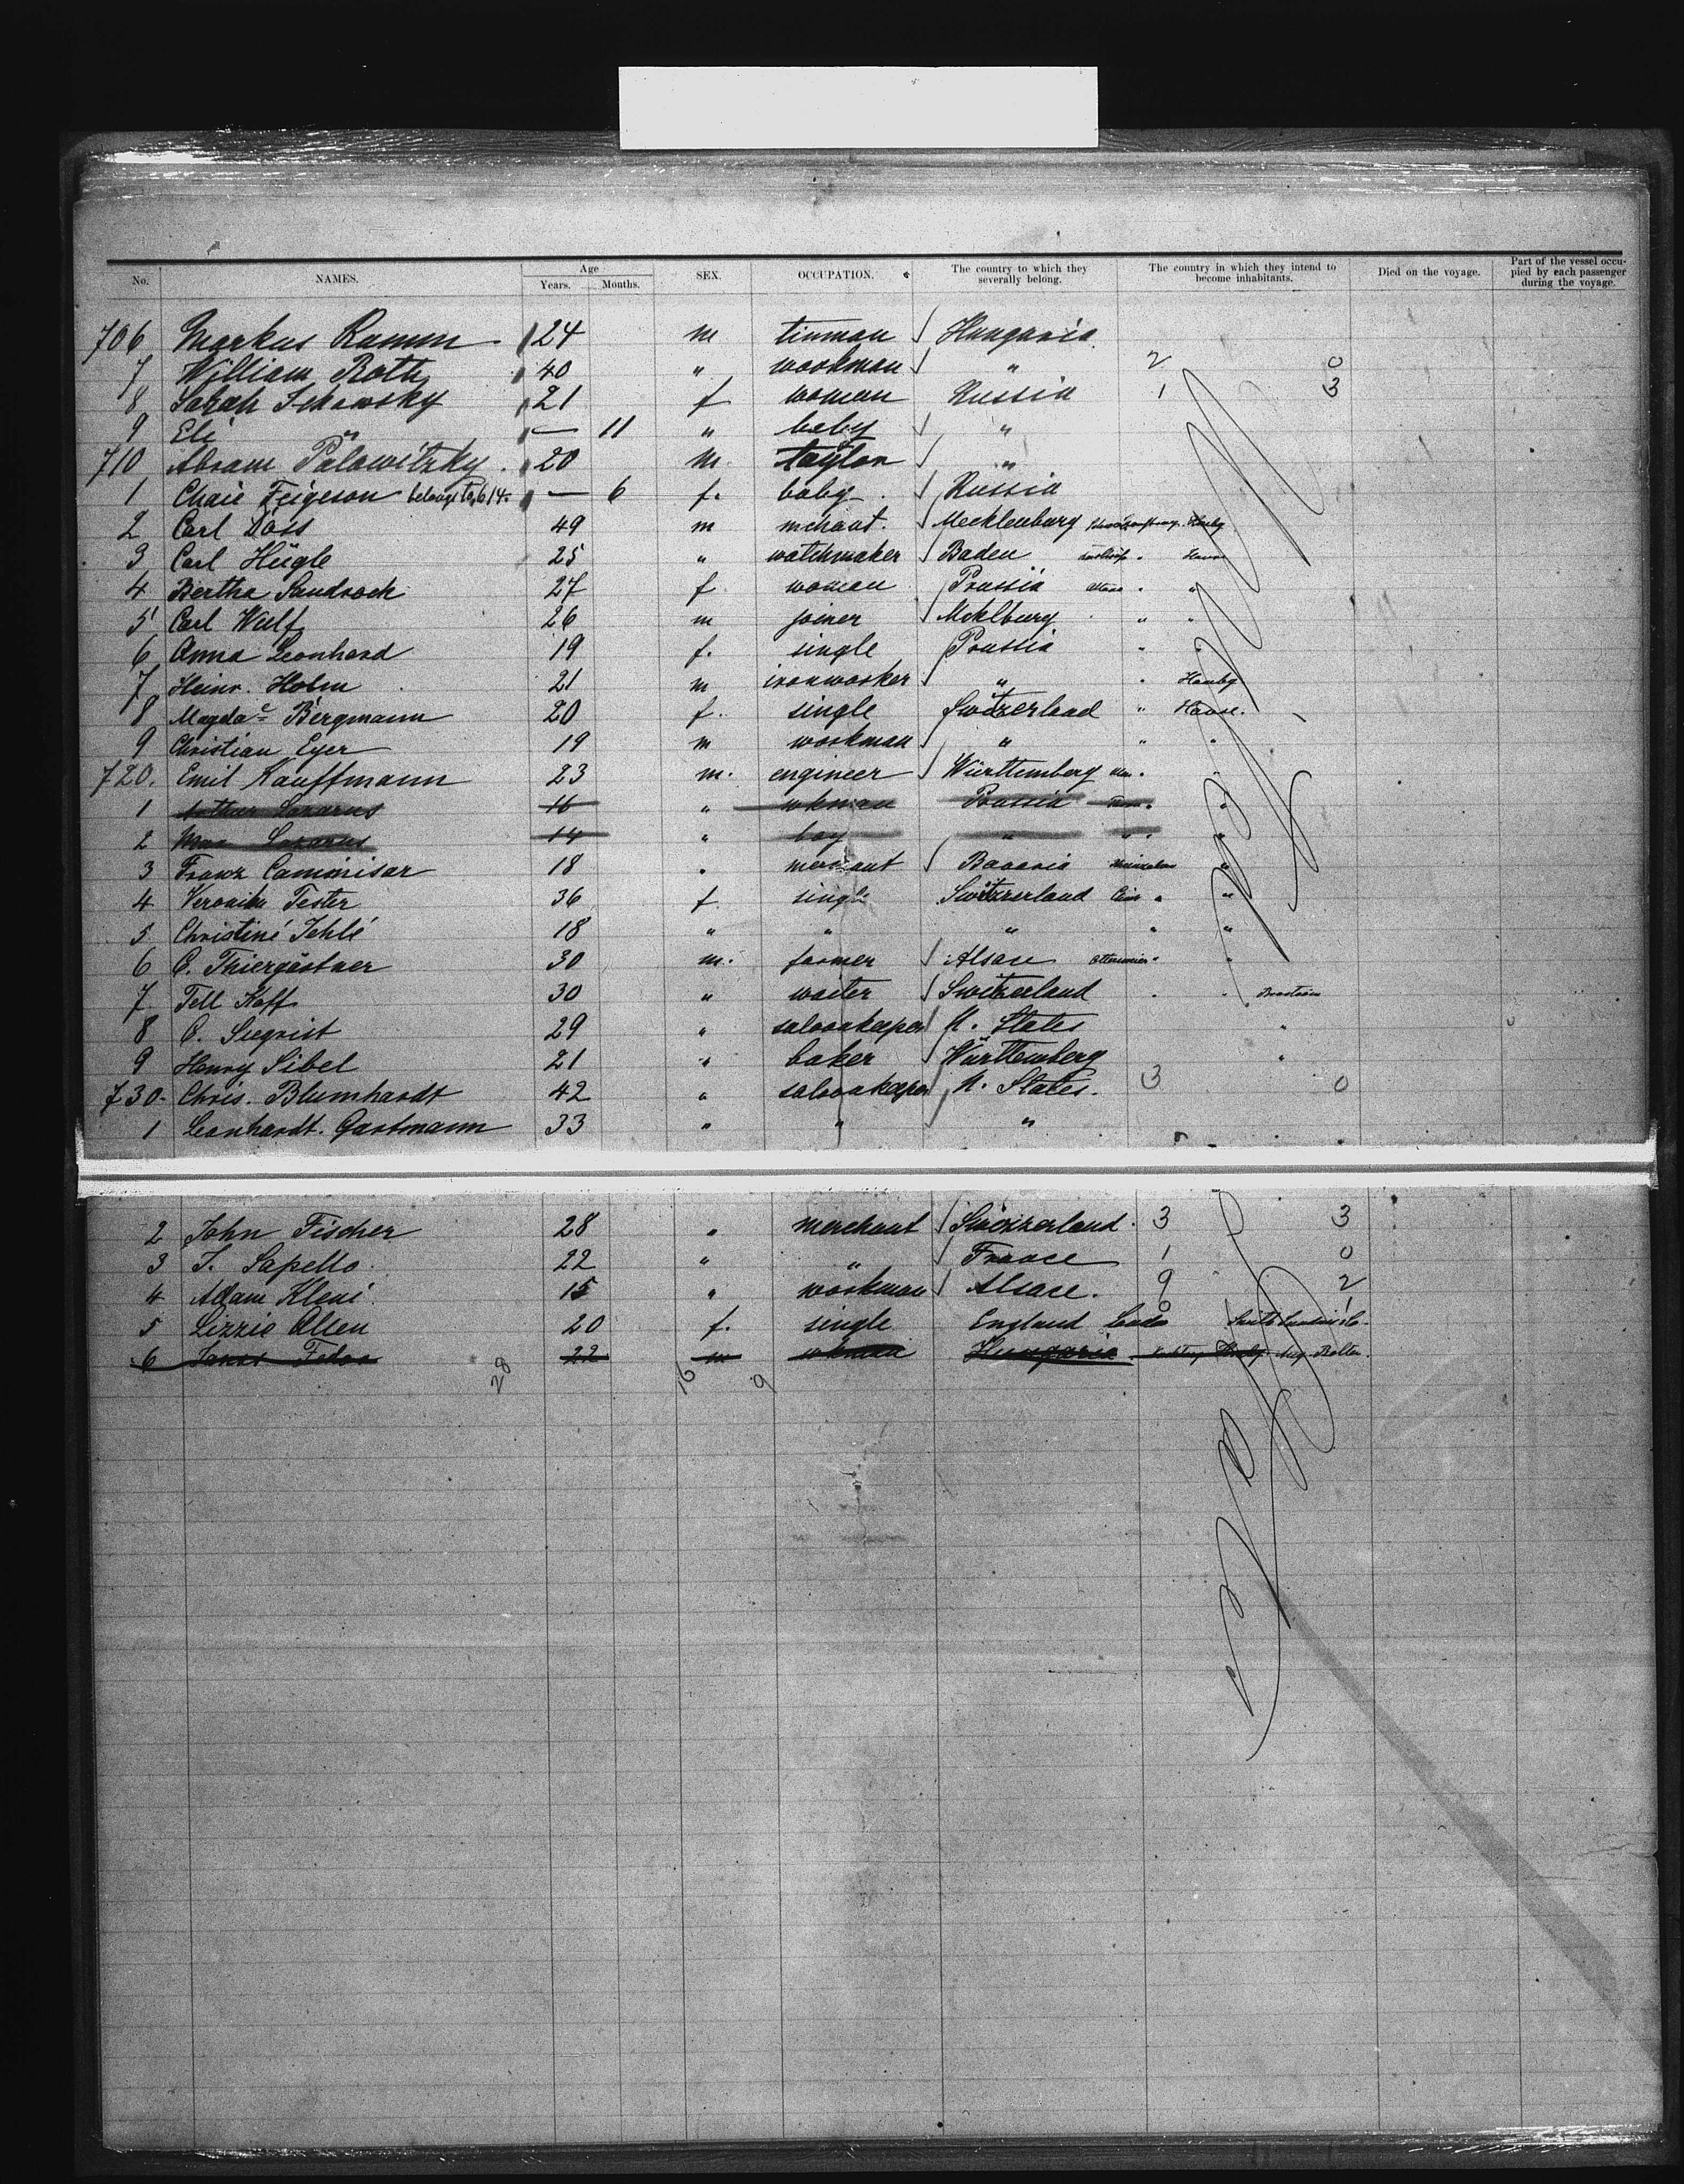 No. NAMES. Age Years. Months. SEX. OCCUPATION. The country to which they severally belong. The country in which they intend to become inhabitants. Died on the voyage. Part of the vessel occupied by each passenger during the voyage.
706 Markus Ramm 24 m tinman Hungaria
7 William Roth 40 " workman " 2 0
8 Sarah 21 f woman Russia 1 3
9 Eli " — 11 " baby "
710 Abram Palowitzky 20 m. taylor "
1 Chaie Feigeson belongs to 614. — 6 f. baby Russia
2 Carl Voss 49 m mchant. Mecklenburg Hambg
3 Carl Hügle 25 " watchmaker Baden Havre
4 Bertha Sandrock 27 f woman Prussia "
5 Carl Wulf 26 m joiner Mcklburg " "
6 Anna Leonhard 19 f. single Prussia " "
7 Heinr. Holm 21 m ironworker " " Hambg
8 Magda Bergmann 20 f. single Switzerland " Havre.
9 Christian Eyer 19 m workman " " "
720. Emil Kauffmann 23 m. engineer Württemberg
1 Arthur Lazarus 16 " wkman Prussia "
2 Lazarus 14 " boy " "
3 Franz Caminisar 18 " merchant Bavaria "
4 Veronika Tester 36 f single Switzerland "
5 Christine Jehlé 18 " " " " "
6 C. Thiergärtner 30 m. farmer Alsace "
7 Tell Kaff 30 " waiter Switzerland " "
8 C. Suqvist 29 " saloonkeeper U. States "
9 Henry Sibel 21 " baker Württemberg "
730. Chris. Blumhardt 42 " saloonkeeper U. States. 3 0
1 Leonhardt. Gartmann 33 " " "
2 John Fischer 28 " merchant Switzerland. 3 3
3 J. Sapello. 22 " " France 1 0
4 Adam Kleni 15 " workman Alsace. 9 2
5 Lizzie Allen 20 f. single England
6 22 m wkman Hungaria
28 16 9